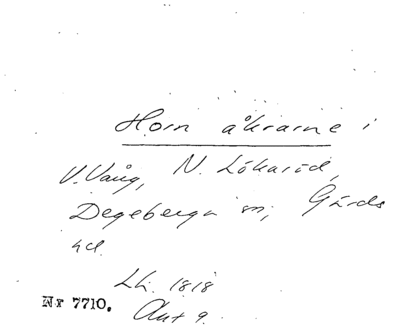 Horn åkrarne i
V. Vång, N. Lökaröd,
Degeberga sn; Gärds
hd.
Lh. 1818
Nr 7710. Akt 9.